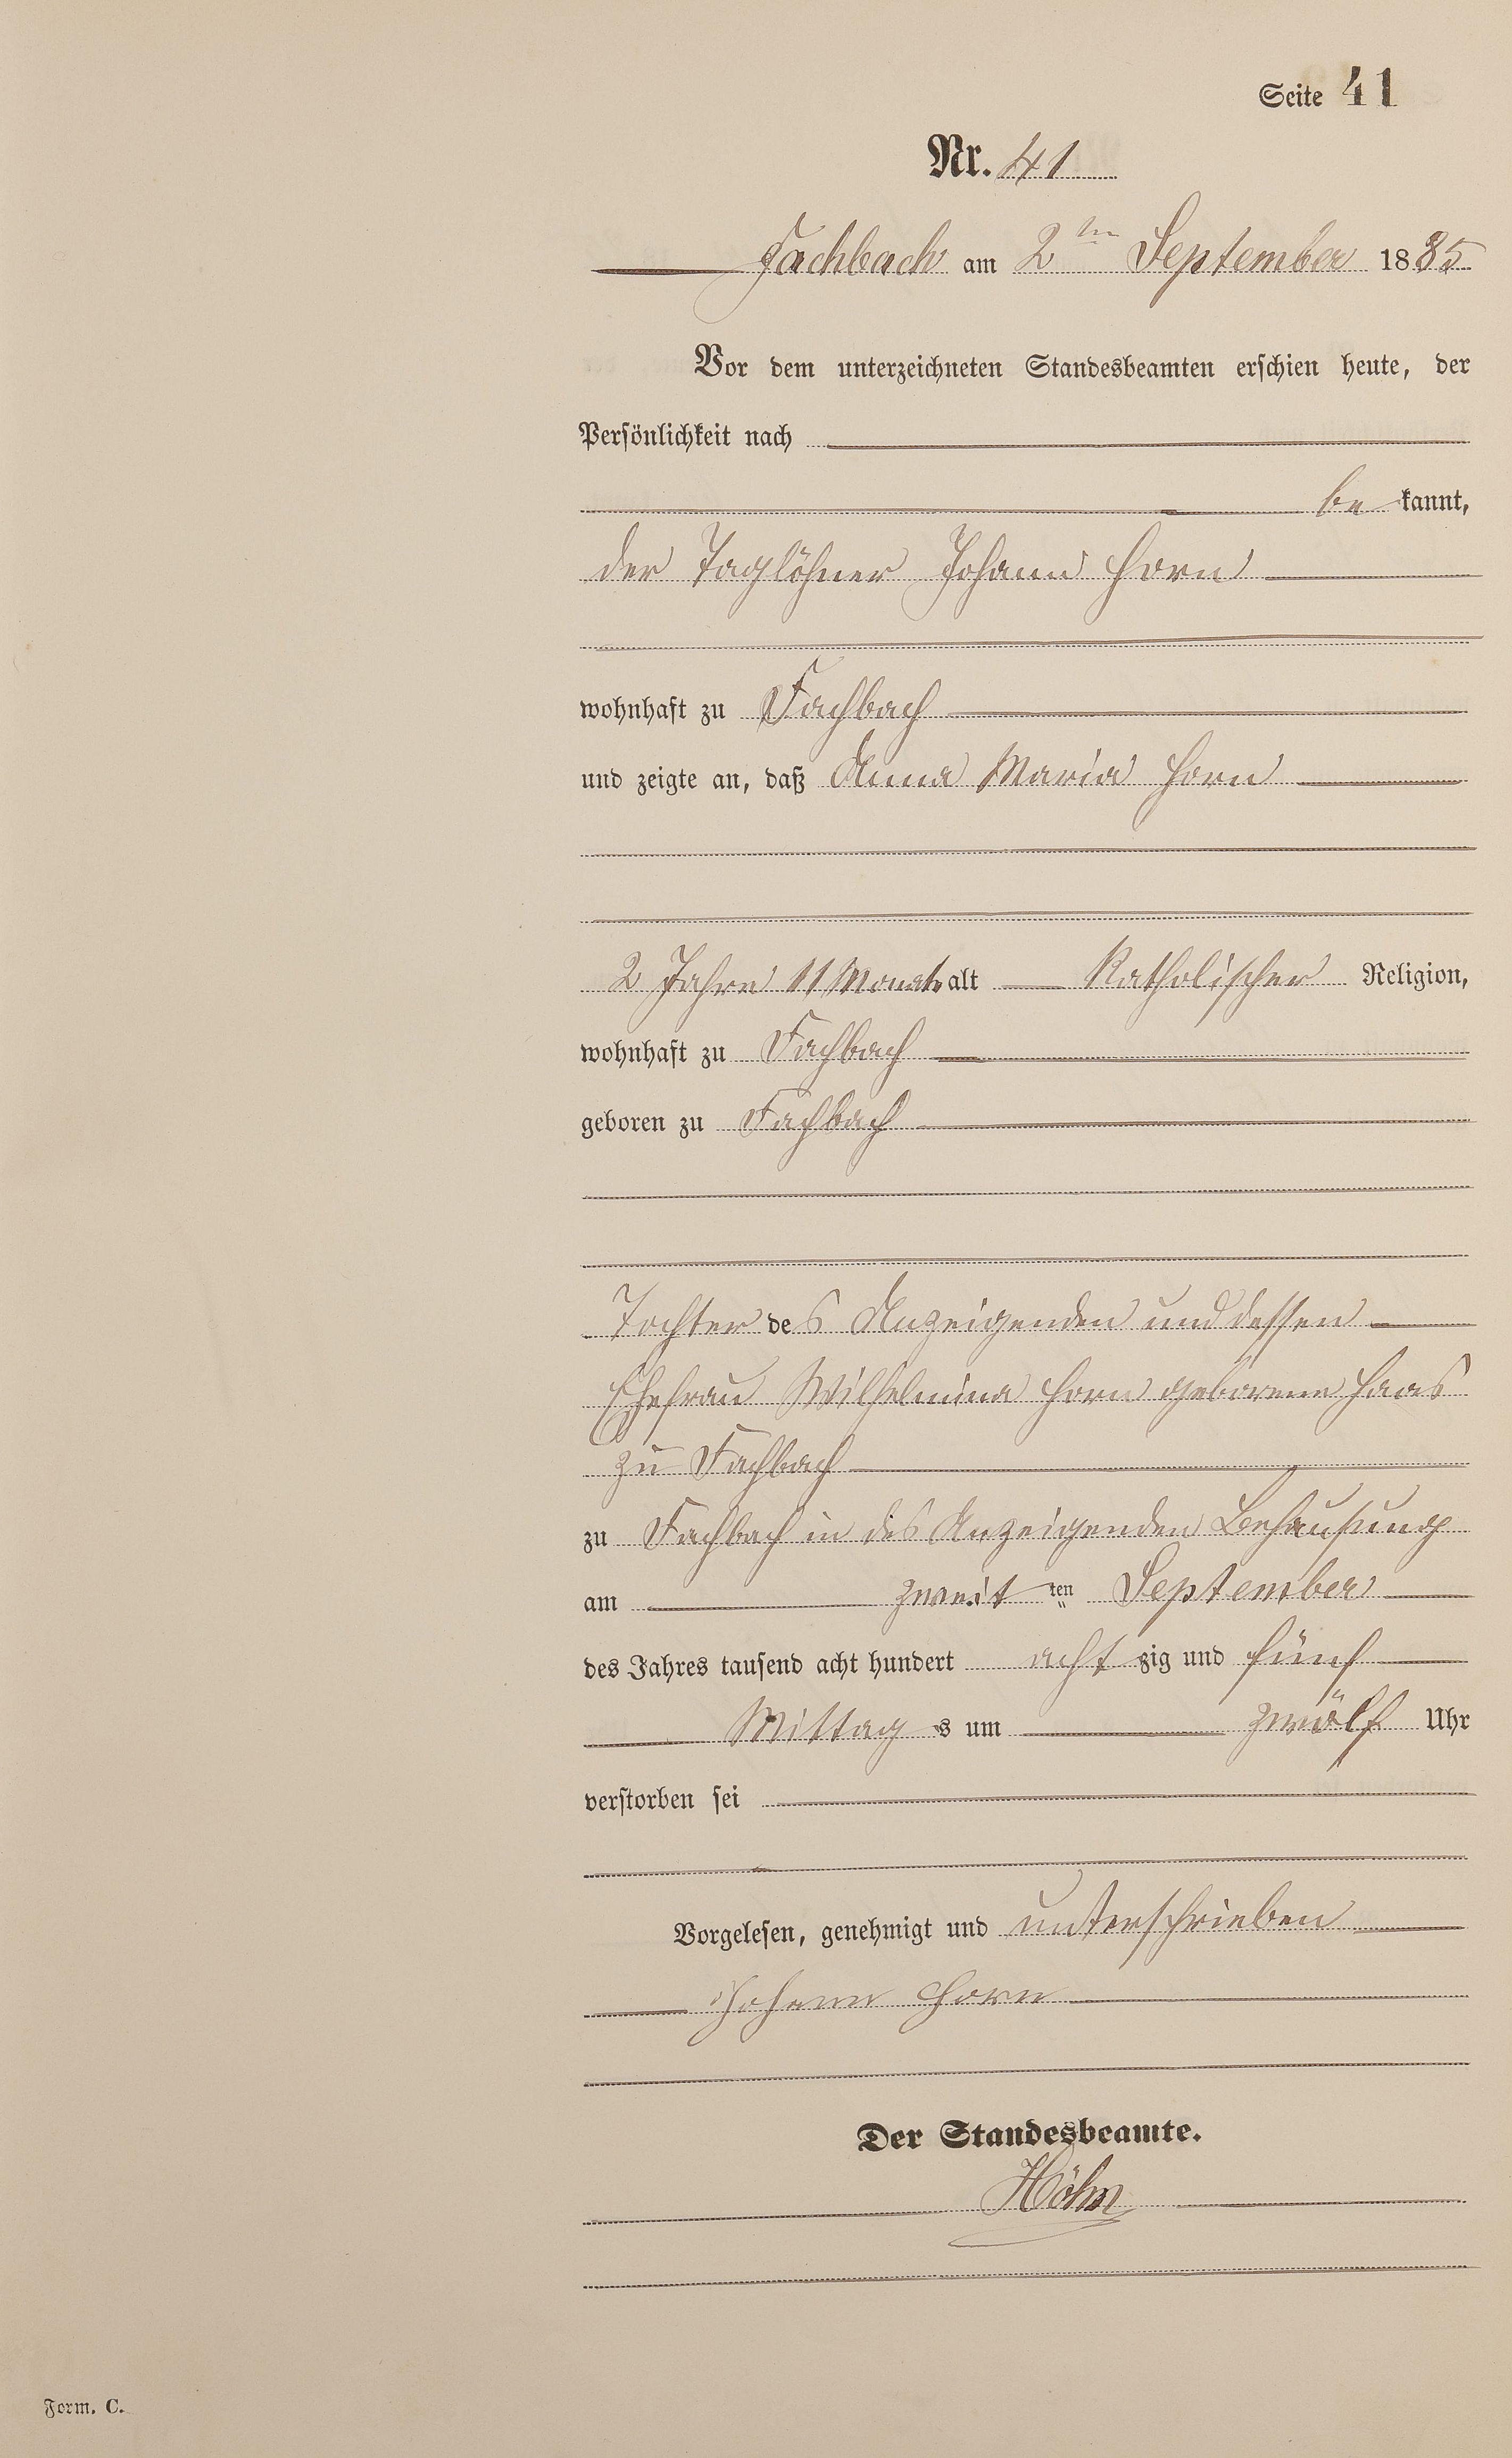 Seite 41
Nr. 41
Fachbach am 2ten September 1885
Vor dem unterzeichneten Standesbeamten erschien heute, der
Persönlichkeit nach
be kannt,
der Taglöhner Johann Horn
wohnhaft zu Fachbach
und zeigte an, daß Anna Maria Horn
2 Jahre 11 Monate alt Katholischer Religion,
wohnhaft zu Fachbach
geboren zu Fachbach
Tochter des Anzeigenden und dessen
Ehefrau Wilhelmina Horn geborene Haas
zu Fachbach
zu Fachbach in des Anzeigenden Behausung
am zweit ten September
des Jahres tausend acht hundert acht zig und fünf
Mittag s um zwölf Uhr
verstorben sei
Vorgelesen, genehmigt und unterschrieben
Johann Horn
Der Standesbeamte.
Höhn
Form. C.